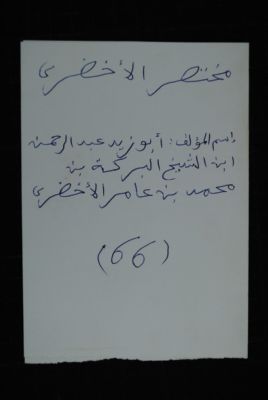 مختصر الأخضري
إسم المؤلف: أبو زيد عبد الرحمن
ابن الشيخ البركة بن
محمد بن عامر الأخضري
(66)